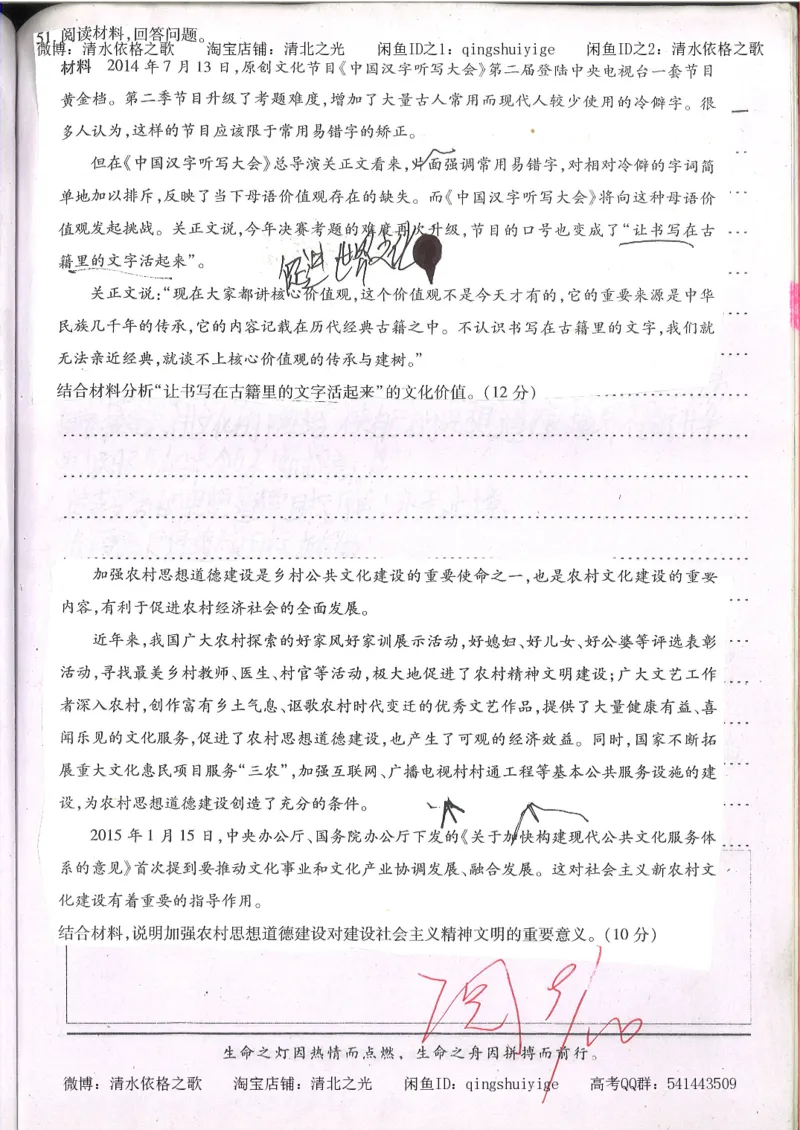 51. 阅读材料,回答问题。
微博：清水依格之歌 淘宝店铺：清北之光 闲鱼ID之1：qingshuiyige 闲鱼ID之2：清水依格之歌
材料 2014年7月13日,原创文化节目《中国汉字听写大会》第二届登陆中央电视台一套节目
黄金档。第二季节目升级了考题难度,增加了大量古人常用而现代人较少使用的冷僻字。很
多人认为,这样的节目应该限于常用易错字的矫正。
但在《中国汉字听写大会》总导演关正文看来,片面强调常用易错字,对相对冷僻的字词简
单地加以排斥,反映了当下母语价值观存在的缺失。而《中国汉字听写大会》将向这种母语价
值观发起挑战。关正文说,今年决赛考题的难度再次升级,节目的口号也变成了“让书写在古
籍里的文字活起来”。
促进世界文化
关正文说:“现在大家都讲核心价值观,这个价值观不是今天才有的,它的重要来源是中华
民族几千年的传承,它的内容记载在历代经典古籍之中。不认识书写在古籍里的文字,我们就
无法亲近经典,就谈不上核心价值观的传承与建树。”
结合材料分析“让书写在古籍里的文字活起来”的文化价值。(12分)
加强农村思想道德建设是乡村公共文化建设的重要使命之一,也是农村文化建设的重要
内容,有利于促进农村经济社会的全面发展。
近年来,我国广大农村探索的好家风好家训展示活动,好媳妇、好儿女、好公婆等评选表彰
活动,寻找最美乡村教师、医生、村官等活动,极大地促进了农村精神文明建设;广大文艺工作
者深入农村,创作富有乡土气息、讴歌农村时代变迁的优秀文艺作品,提供了大量健康有益、喜
闻乐见的文化服务,促进了农村思想道德建设,也产生了可观的经济效益。同时,国家不断拓
展重大文化惠民项目服务“三农”,加强互联网、广播电视村村通工程等基本公共服务设施的建
设,为农村思想道德建设创造了充分的条件。
2015年1月15日,中央办公厅、国务院办公厅下发的《关于加快构建现代公共文化服务体
系的意见》首次提到要推动文化事业和文化产业协调发展、融合发展。这对社会主义新农村文
化建设有着重要的指导作用。
结合材料,说明加强农村思想道德建设对建设社会主义精神文明的重要意义。(10分)
生命之灯因热情而点燃，生命之舟因拼搏而前行。
微博：清水依格之歌 淘宝店铺：清北之光 闲鱼ID：qingshuiyige 高考QQ群：541443509